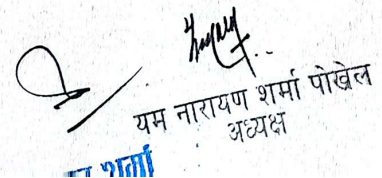 यम नारायण शर्मा पोखेल
अध्यक्ष
शर्मा